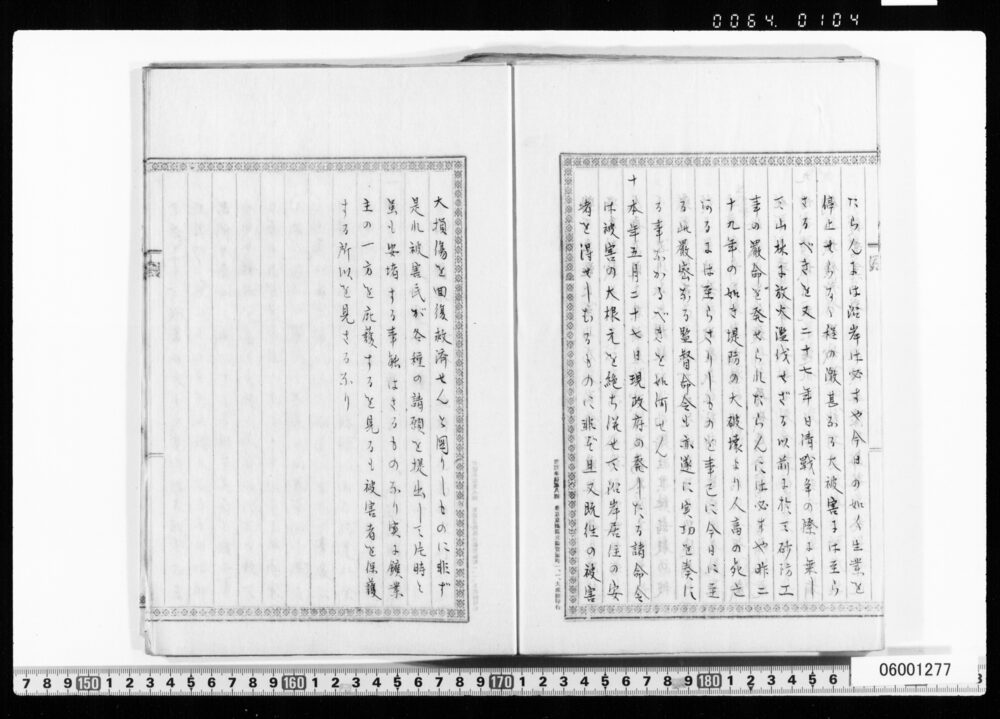 0064. 0104
たらんには沿岸は必すや今日の如く生業を
停止せらるゝ程の激甚なる大被害には至ら
さるべきを又二十七年日清戦争の際に乗し
て山林に放火濫伐せざる以前に於て砂防工
事の厳命を発せられたらんには必すや昨二
十九年の如き堤防の大破壊より人畜の死亡
あるには至らさりしものを事已に今日に至
る此厳密なる監督命令も亦遂に実功を奏に
る事なかるべきを如何せん
十 本年五月二十七日現政府の發したる諸命令
は被害の大根元を絶ち従せて沿岸居住の安
寧を得せしむるものに非ず且又既往の被害
大損傷を回復救済せんと図りしものに非ず
是れ被害民が各種の請願を提出して片時も
雖も安堵する事能はさるものなり実に鑛業
主の一方を庇護するを見るも被害者を保護
する所以を見さるなり
06001277
7 8 9 150 1 2 3 4 5 6 7 8 9 160 1 2 3 4 5 6 7 8 9 170 1 2 3 4 5 6 7 8 9 180 1 2 3 4 5 6